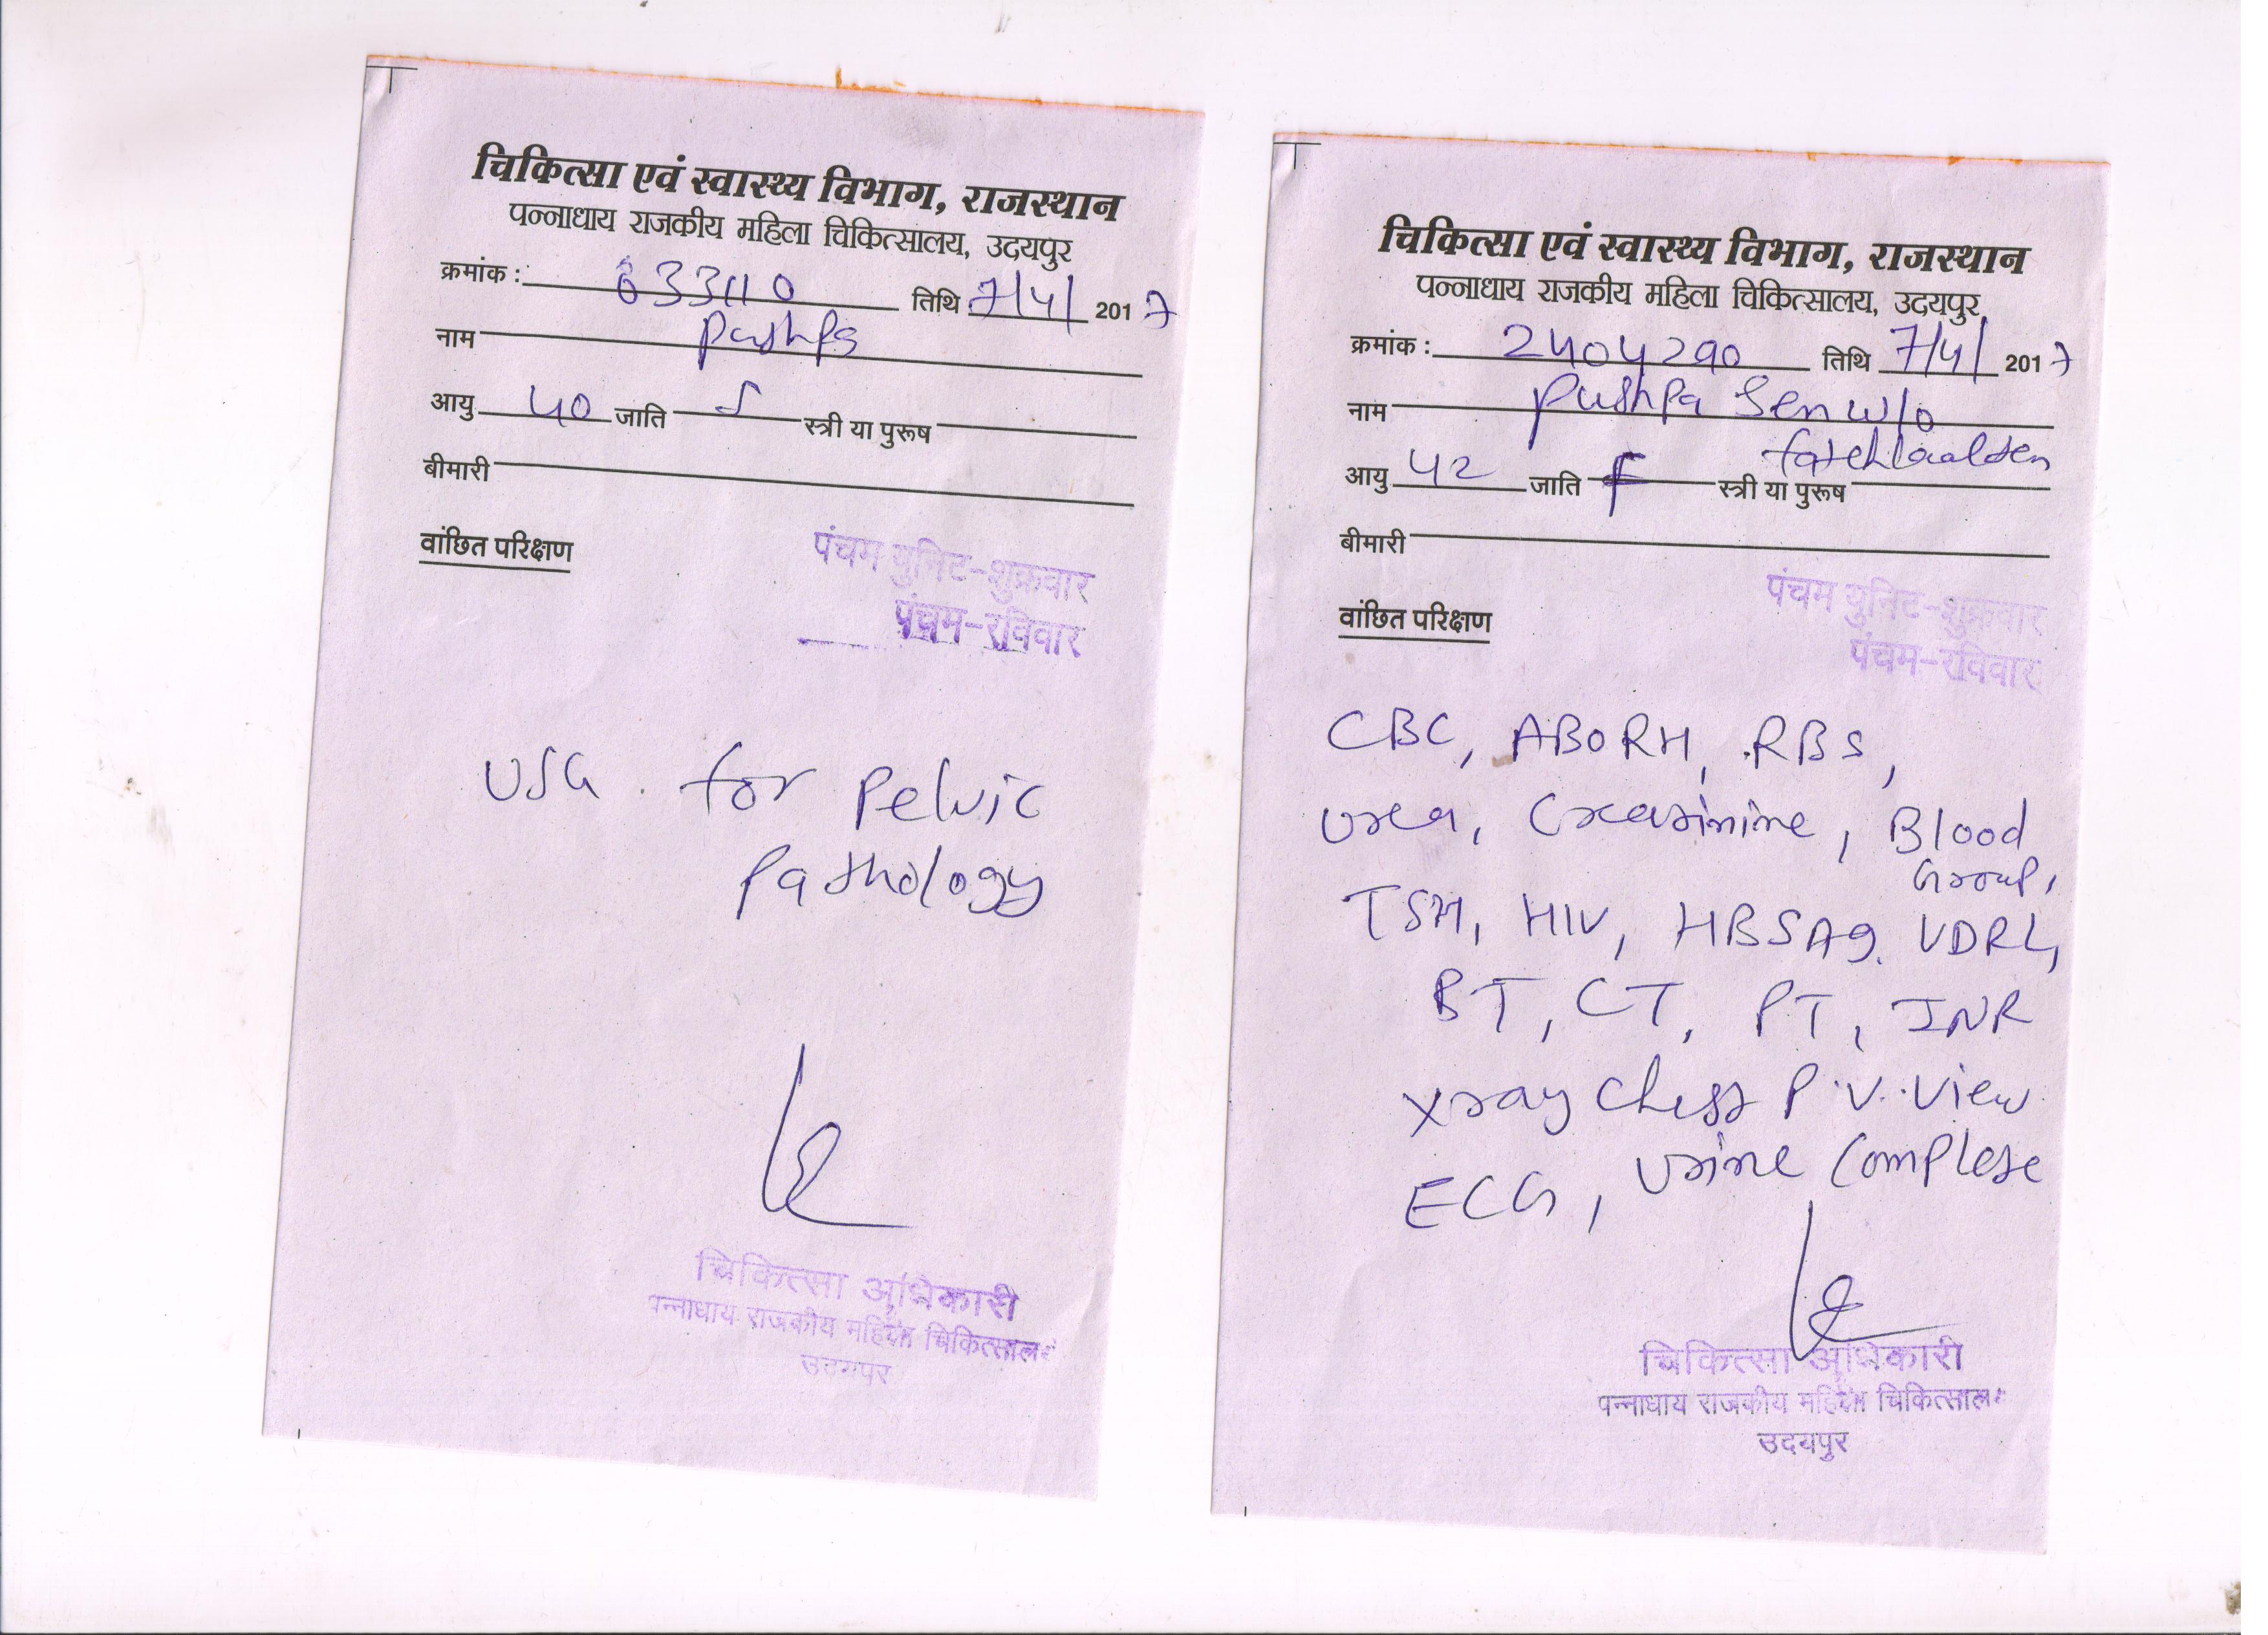 चिकित्सा एवं स्वास्थ्य विभाग, राजस्थान
पन्नाधाय राजकीय महिला चिकित्सालय, उदयपुर
क्रमांक : 633110 तिथि 7/4/ 2017
नाम Pushpa
आयु 40 जाति स्त्री या पुरूष
बीमारी
वांछित परिक्षण
पंचम युनिट-शुक्रवार
पंचम-रविवार
USG. for Pelvic
Pathology
चिकित्सा अधिकारी
पन्नाधाय राजकीय महिला चिकित्सालय
उदयपुर
चिकित्सा एवं स्वास्थ्य विभाग, राजस्थान
पन्नाधाय राजकीय महिला चिकित्सालय, उदयपुर
क्रमांक : 2404290 तिथि 7/4/ 2017
नाम Pushpa Sen w/o
fatehlaalsen
आयु 42 जाति F स्त्री या पुरूष
बीमारी
वांछित परिक्षण
पंचम युनिट-शुक्रवार
पंचम-रविवार
CBC, ABORH, RBS,
Urea, Creatinine, Blood
Group,
TSH, HIV, HBSAg. VDRL,
BT, CT, PT, INR
Xray Chest P.V. View
ECG, Urine Complete
चिकित्सा अधिकारी
पन्नाधाय राजकीय महिला चिकित्सालय
उदयपुर